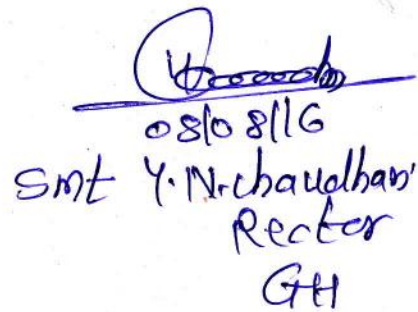 08/08/16
Smt Y.N.chaudhari
Rector
GH